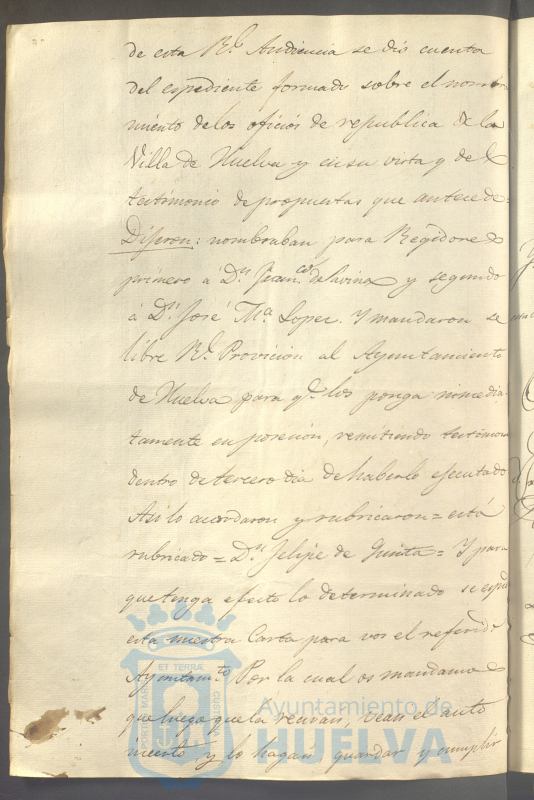 de esta Rl. Audiencia se dió cuenta
del espediente formado sobre el nombra
miento de los oficios de republica de la
Villa de Huelva y en su vista y del
testimonio de propuestas que antecede=
Dijeron: nombraban para Regidores
primero á Dn. Franco. de la vina y segundo
á Dn. José Ma. Lopez. Y mandaron se
libre Rl. Provicion al Ayuntamiento
de Huelva para qe. los ponga inmedia
tamente en posesion, remitiendo testimonio
dentro de tercero dia de haberlo ejecutado
Asi lo acordaron y rubricaron= está
rubricado= Dn. Felipe de = Y para
que tenga efecto lo determinado se espide
esta nuestra Carta para vos el referido
Ayuntamto. Por la cual os mandamos
que luego que la recivais, veais el auto
incerto y lo hagais guardar y cumplir
PORTUS MARIS ET TERRÆ CUSTODIA
Ayuntamiento de
HUELVA